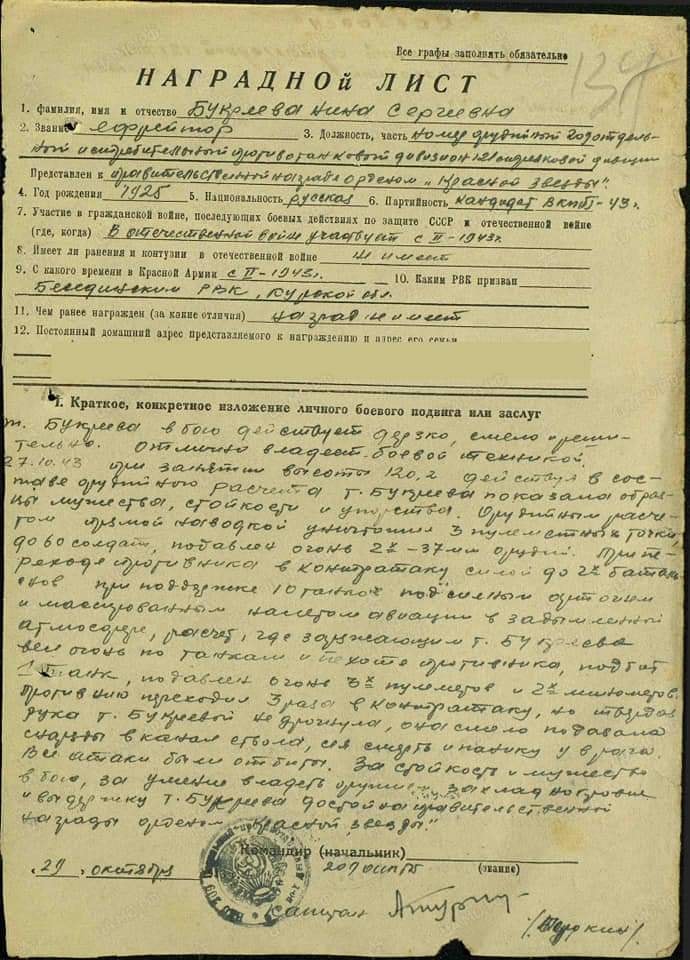 Все графы заполнять обязательно
134
НАГРАДНОЙ ЛИСТ
1. фамилия, имя и отчество Букреева Нина Сергеевна
2. Звание Ефрейтор 3. Должность, часть номер орудийный 209 отдель-
ный истребительный противотанковый дивизион 121 стрелковой дивизии
Представлен к правительственной награде орденом „Красной Звезды".
4. Год рождения 1925 5. Национальность русская 6. Партийность кандидат ВКП(б)-43г.
7. Участие в гражданской войне, последующих боевых действиях по защите СССР и отечественной войне
(где, когда) В отечественной войне участвует с II-1943г.
8. Имеет ли ранения и контузии в отечественной войне не имеет
9. С какого времени в Красной Армии с II-1943г. 10. Каким РВК призван
Бесединским РВК, Курской обл.
11. Чем ранее награжден (за какие отличия) наград не имеет
12. Постоянный домашний адрес представляемого к награждению и адрес его семьи
I. Краткое, конкретное изложение личного боевого подвига или заслуг
т. Букреева в бою действует дерзко, смело и реши-
тельно. Отлично владеет боевой техникой.
27.10.43 при занятии высоты 120,2 действуя в сос-
таве орудийного расчета т. Букреева показала образ-
цы мужества, стойкости и упорства. Орудийным расче-
том прямой наводкой уничтожил 3 пулеметных точки,
до 60 солдат, подавлен огонь 2х-37мм орудий. При пе-
реходе противника в контратаку силой до 2х баталь-
онов при поддержке 10 танков под сильным артогнем
и массированным налетом авиации в задымленной
атмосфере, расчет, где заряжающим т. Букреева
вел огонь по танкам и пехоте противника, подбит
1 танк, подавлен огонь 3х пулеметов и 2х минометов.
Противник переходил 3 раза в контратаку, но твердая
рука т. Букреевой не дрогнула, она смело подавала
снаряды в канал ствола, сея смерть и панику у врага.
Все атаки были отбиты. За стойкость и мужество
в бою, за умение владеть оружием, за хладнокровие
и выдержку т. Букреева достойна правительственной
награды орденом „Красной Звезды."
Командир (начальник)
29 октября 209 оиптд (звание)
Капитан